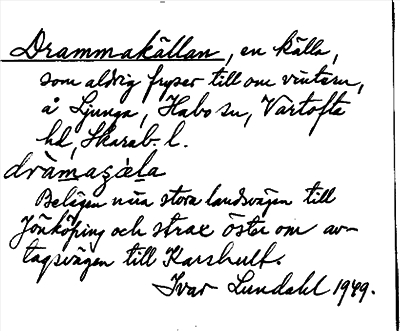 Drammakällan, en källa,
som aldrig fryser till om vintern,
å Ljunga, Habo sn, Vartofta
hd, Skarab. l.
dràmaçæ̀la
Belägen nära stora landsvägen till
Jönköping och strax öster om av-
tagsvägen till Karshult.
Ivar Lundahl 1949.